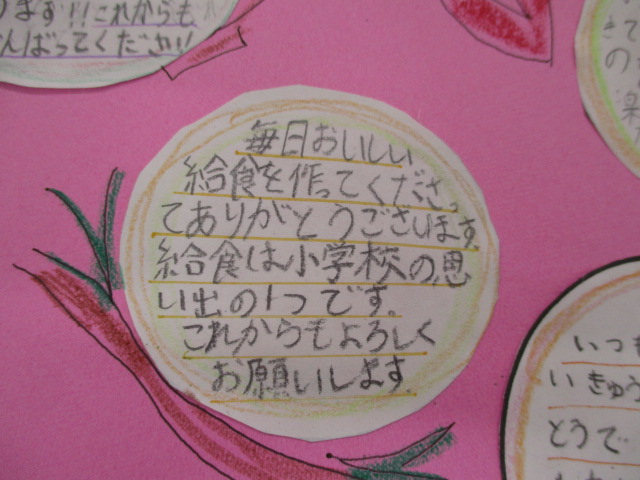 ます!!これからも
んばってください!!
毎日おいしい
給食を作ってくださっ
てありがとうございます。
給食は小学校の思
い出の1つです。
これからもよろしく
お願いします。
いつも
いきゅう
とうで